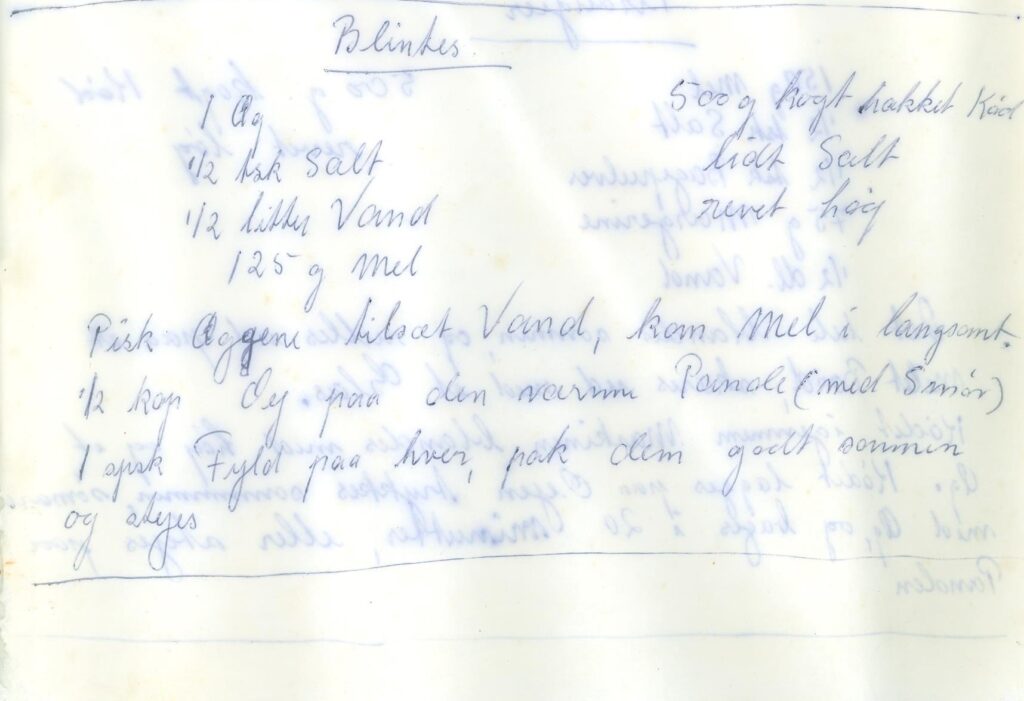 Blintes
1 Æg
1/2 tsk Salt
1/2 litter Vand
125 g Mel
500 g kogt hakket Kød
lidt Salt
revet Løg
Pisk Æggene tilsæt Vand, kom Mel i langsomt.
1/2 kop Dej paa den varme Pande (med Smør)
1 spsk Fyld paa hver, pak dem godt sammen
og steges